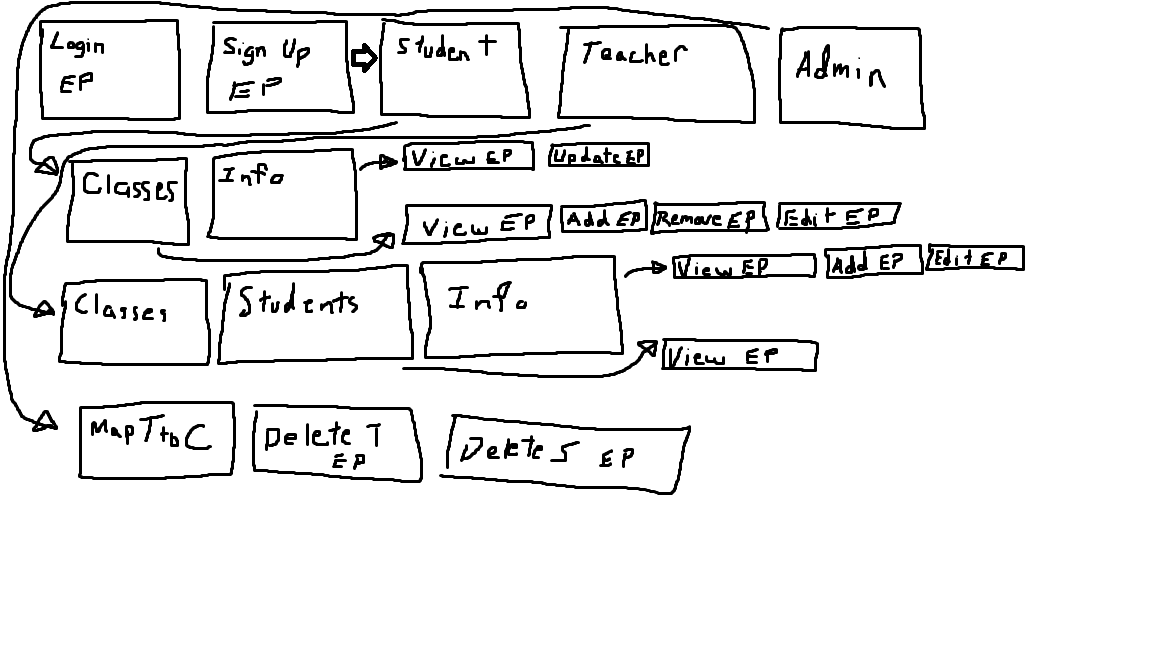 Login
EP
Sign Up
EP
Student
Teacher
Admin
Classes
Info
View EP
Update EP
View EP
Add EP
Remove EP
Edit EP
Classes
Students
Info
View EP
Add EP
Edit EP
View EP
Map T to C
Delete T
EP
Delete S EP